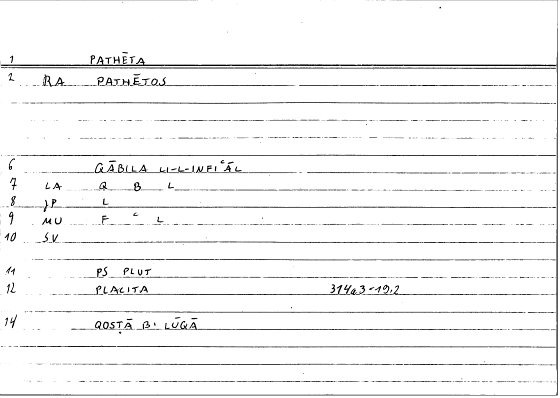 1 PATHĒTA
2 RA PATHĒTOS
6 QĀBILA LI-L-INFIʿĀL
7 LA Q B L
8 JP L
9 MU F ʿ L
10 SV
11 PS PLUT
12 PLACITA 314a3-19.2
14 QOSṬĀ B. LŪQĀ